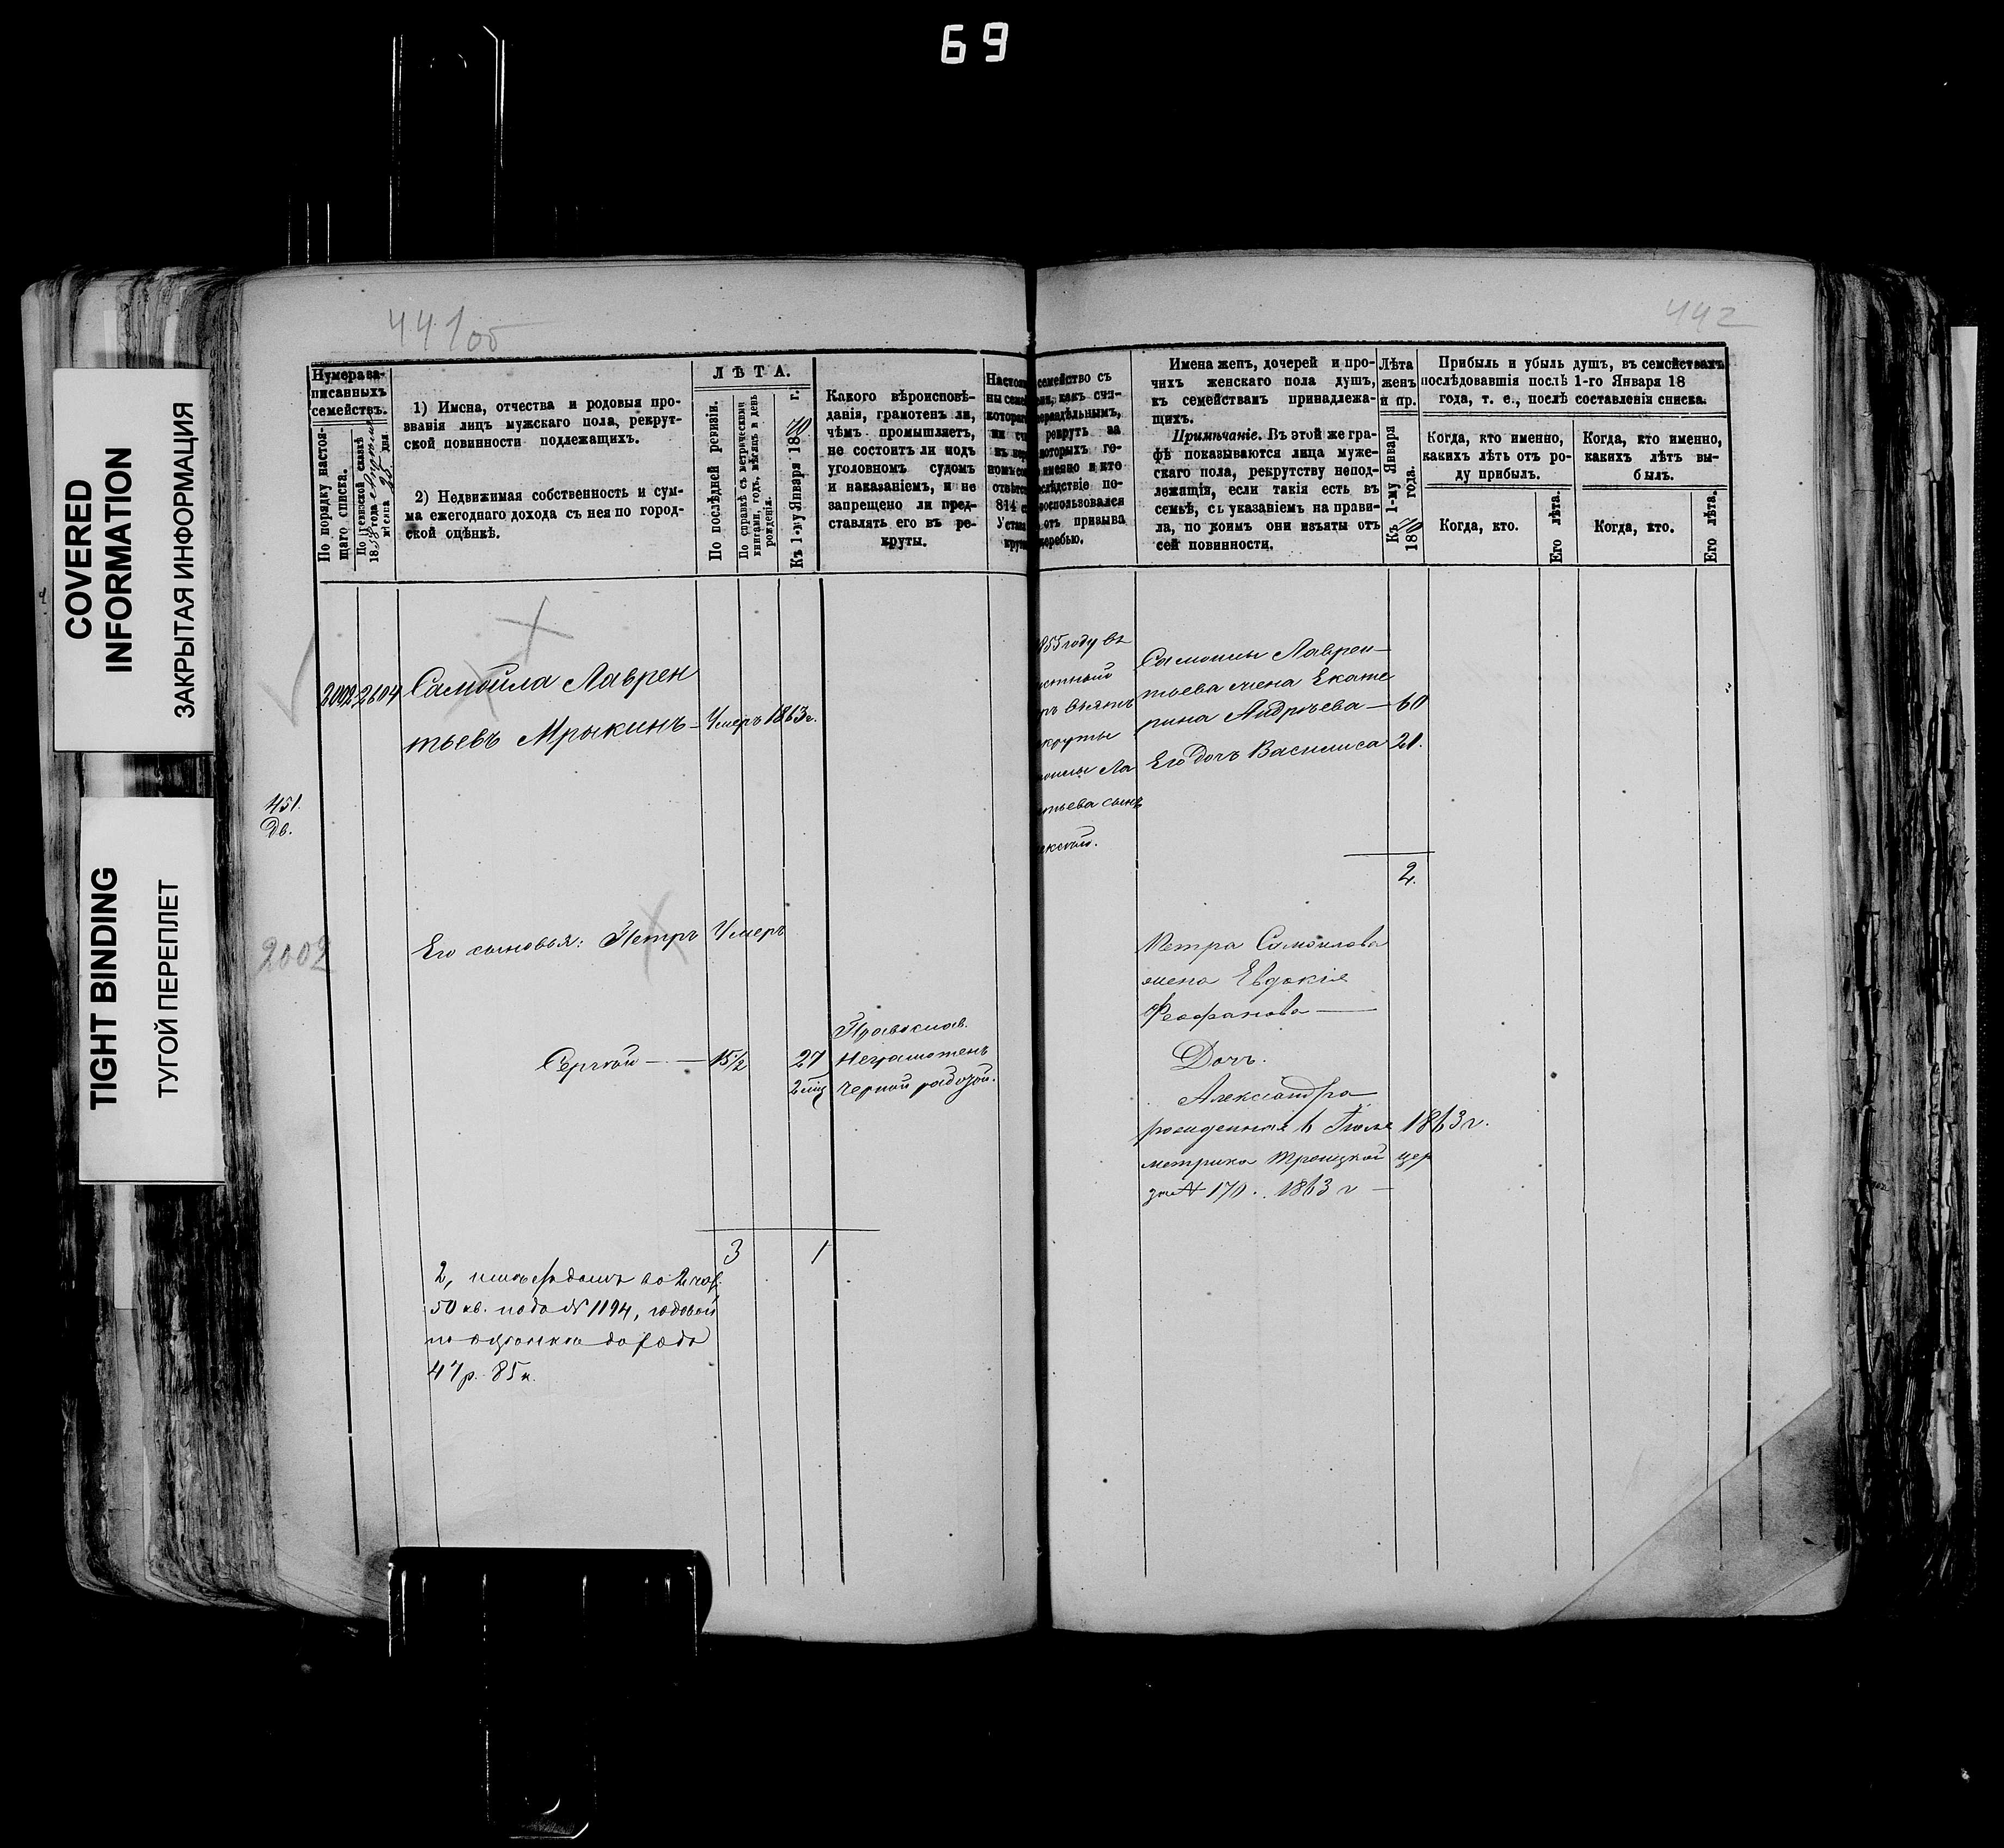 69
COVERED
INFORMATION
ЗАКРЫТАЯ ИНФОРМАЦИЯ
TIGHT BINDING
ТУГОЙ ПЕРЕПЛЕТ
441об
442
Нумера за-
писанныхъ
семействъ.
По порядку настоя-
щаго списка.
По ревизской сказкѣ
18 года
мѣсяца дня.
1) Имена, отчества и родовыя про-
званія лицъ мужскаго пола, рекрут-
ской повинности подлежащихъ.
2) Недвижимая собственность и сум-
ма ежегоднаго дохода съ нея по город-
ской оцѣнкѣ.
ЛѢТА.
По послѣдней ревизіи.
По справкѣ съ метрическими
книгами, годъ, мѣсяцъ и день
рожденія.
Къ 1-му Января 1870 г.
Какого вѣроисповѣ-
данія, грамотенъ ли,
чѣмъ промышляетъ,
не состоитъ ли подъ
уголовномъ судомъ
и наказаніемъ, и не
запрещено ли пред-
ставлять его въ ре-
круты.
семейство съ
какъ счи-
нераздѣльнымъ,
рекрутъ за
которыхъ го-
именно и кто
слѣдствіе по-
воспользовался
отъ призыва
жеребью.
Имена женъ, дочерей и про-
чихъ женскаго пола душъ,
къ семействамъ принадлежа-
щихъ.
Примѣчаніе. Въ этой же гра-
фѣ показываются лица муже-
скаго пола, рекрутству непод-
лежащія, если такія есть въ
семьѣ, съ указаніемъ на прави-
ла, по коимъ они изъяты отъ
сей повинности.
Лѣта
женъ
и пр.
Къ 1-му Января
1870 года.
Прибыль и убыль душъ, въ семействахъ
послѣдовавшія послѣ 1-го Января 18
года, т. е., послѣ составленія списка.
Когда, кто именно,
какихъ лѣтъ отъ ро-
ду прибылъ.
Когда, кто именно,
какихъ лѣтъ вы-
былъ.
Когда, кто.
Его лѣта.
Когда, кто.
Его лѣта.
2002 2604 Самойла Лаврен
тьевъ Мрыкинъ - Умеръ 1863 г.
451.
Дв.
2002
Его сыновья: Петръ Умеръ
Сергѣй 15½ 27
Православ.
Неграмотенъ
черной работой.
3 1
50 кв. подъ № 1194, годовой
47 р. 85 к.
1855 году въ
взятъ
тьева сынъ
Самойлы Лаврен
тьева жена Екате
рина Андрѣева 60
Его дочь Василиса 21.
2.
Петра Самойлова
жена Евдокія
Феофанова
Дочь.
Александра
рожденная 6 Іюля 1863 г.
метрика Троицкой цер
за № 170. 1863 г